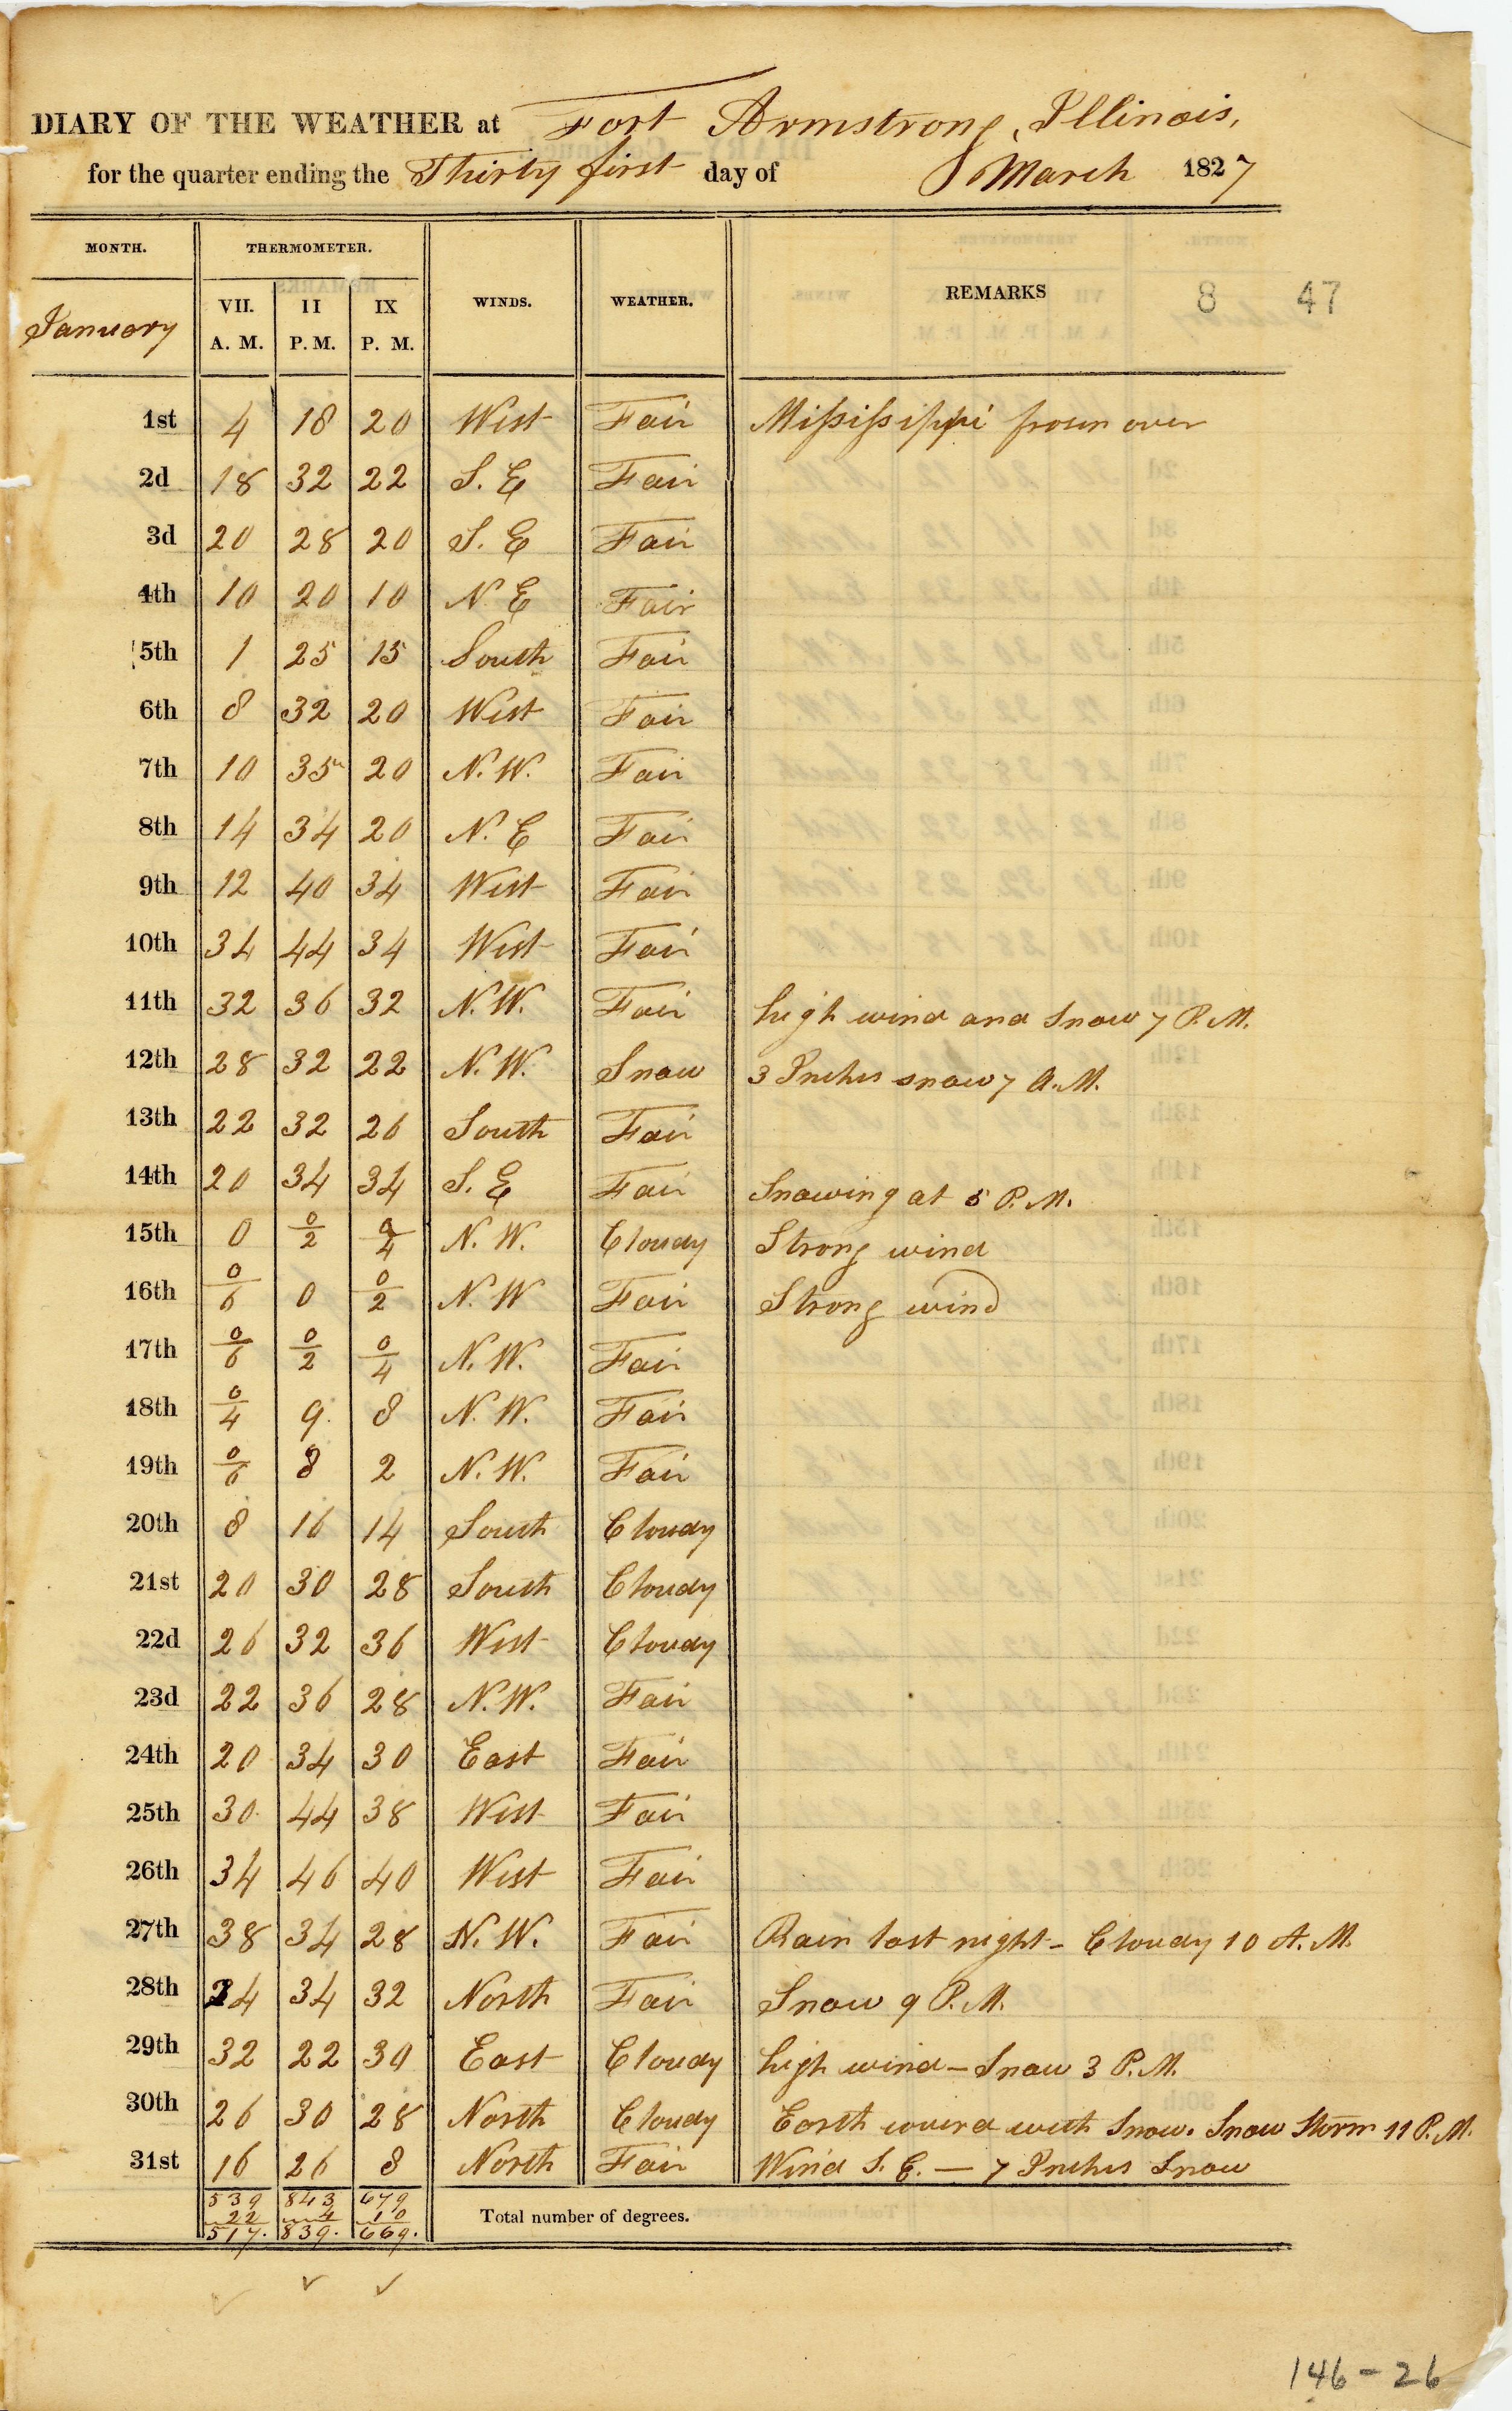 DIARY OF THE WEATHER at Fort Armstrong, Illinois,
for the quarter ending the Thirty first day of March 1827
MONTH. THERMOMETER. WINDS. WEATHER. REMARKS 8 47
January VII. A. M. II P. M. IX P. M.
1st 4 18 20 West Fair Missisippi frosen over
2d 18 32 22 S. E Fair
3d 20 28 20 S. E Fair
4th 10 20 10 N. E Fair
5th 1 25 15 South Fair
6th 8 32 20 West Fair
7th 10 35 20 N. W. Fair
8th 14 34 20 N. E Fair
9th 12 40 34 West Fair
10th 34 44 34 West Fair
11th 32 36 32 N. W. Fair high wind and Snow 7 P. M.
12th 28 32 22 N. W. Snow 3 Inches snow 7 A. M.
13th 22 32 26 South Fair
14th 20 34 34 S. E Fair Snowing at 5 P. M.
15th 0 0/2 0/4 N. W. Cloudy Strong wind
16th 0/6 0 0/2 N. W Fair Strong wind
17th 0/6 0/2 0/4 N. W. Fair
18th 0/4 9. 8 N. W. Fair
19th 0/6 8 2 N. W. Fair
20th 8 16 14 South Cloudy
21st 20 30 28 South Cloudy
22d 26 32 36 West Cloudy
23d 22 36 28 N. W. Fair
24th 20 34 30 East Fair
25th 30 44 38 West Fair
26th 34 46 40 West Fair
27th 38 34 28 N. W. Fair Rain last night - Cloudy 10 A. M.
28th 24 34 32 North Fair Snow 9 P. M.
29th 32 22 30 East Cloudy high wind - Snow 3 P. M.
30th 26 30 28 North Cloudy Earth coverd with Snow. Snow Storm 11 P. M.
31st 16 26 8 North Fair Wind S. E. — 7 Inches Snow
539 843 679
22 4 10
517. 839. 669. Total number of degrees.
146-26